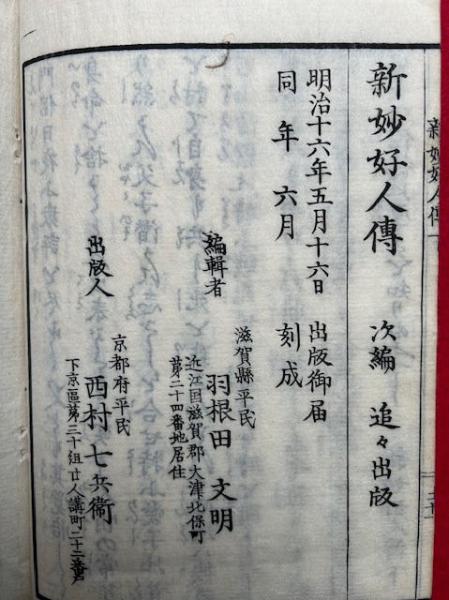 新妙好人傳 次編 追々出版
明治十六年五月十六日 出版御届
同年六月 刻成
滋賀縣平民
編輯者 羽根田文明
近江国滋賀郡大津北保町
第二十四番地居住
京都府平民
出版人 西村七兵衞
下京區第三十組廿人講町二十二番戸
新妙好人傳